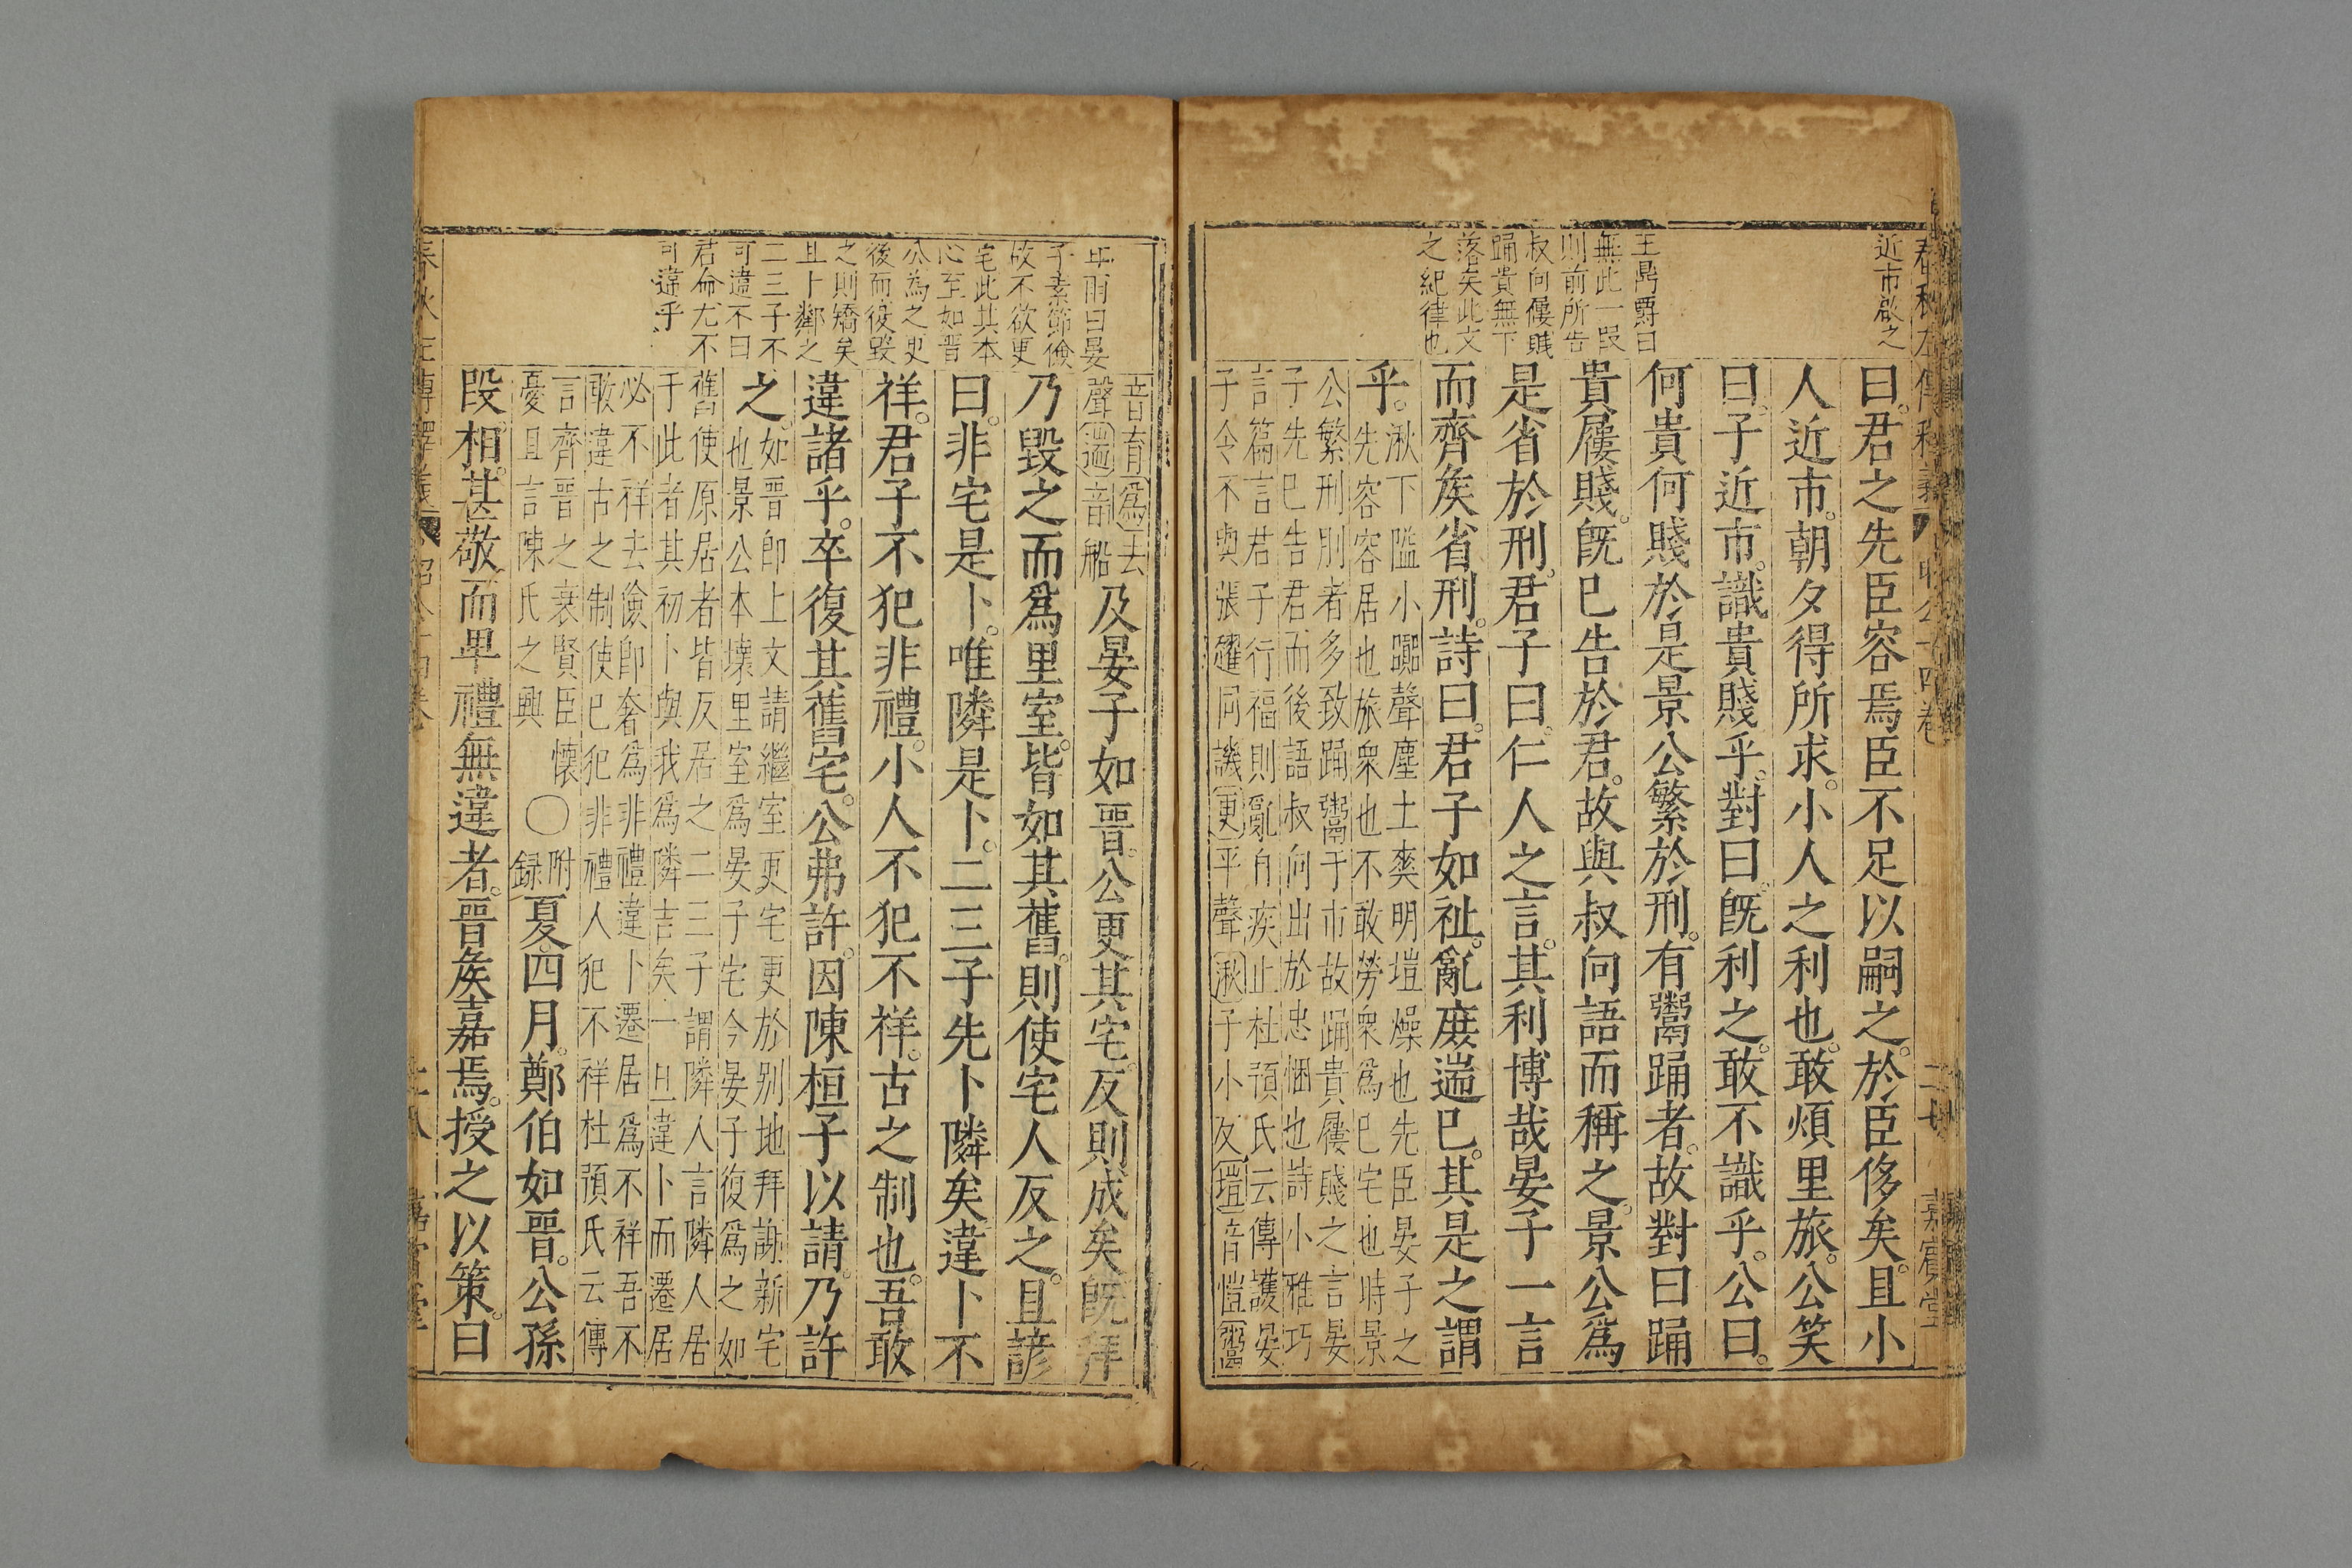 近市啟之
王鼎爵曰
無此一段
則前所告
叔向屨賤
踊貴無下
落矣此文
之紀律也
曰。君之先臣容焉臣不足以嗣之。於臣侈矣。且小
人近市。朝夕得所求。小人之利也。敢煩里旅。公笑
曰。子近市。識貴賤乎。對曰。旣利之。敢不識乎。公曰。
何貴何賤於是景公繁於刑。有鬻踊者。故對曰踊
貴屨賤。旣已告於君。故與叔向語而稱之。景公爲
是省於刑。君子曰。仁人之言。其利博哉晏子一言
而齊矦省刑。詩曰。君子如祉。亂庻遄已。其是之謂
乎。
湫下隘小嚻聲塵土爽明塏燥也先臣晏子之
先容容居也旅衆也不敢勞衆爲已宅也時景
公繁刑刖者多致踊鬻于市故踊貴屨賤之言晏
子先已告君而後語叔向出於忠悃也詩小雅巧
言篇言君子行福則亂自疾止杜預氏云傳護晏
子令不與張趯同譏更平聲湫子小反塏音愷鬻
年雨曰晏
子素節儉
故不欲更
宅此其本
心至如晋
公為之更
後而復毀
之則矯矣
且卜鄰之
二三子不
可違不曰
君命尤不
可違乎
音育爲去
聲遄音船
及晏子如晉。公更其宅。反則成矣旣拜
乃毀之而爲里室。皆如其舊。則使宅人反之。且諺
曰。非宅是卜。唯隣是卜。二三子先卜隣矣違卜不
祥。君子不犯非禮。小人不犯不祥。古之制也。吾敢
違諸乎。卒復其舊宅。公弗許。因陳桓子以請。乃許
之。
如晋卽上文請繼室更宅更於别地拜謝新宅
也景公本壞里室爲晏子宅今晏子復爲之如
舊使原居者皆反居之二三子謂隣人言隣人居
于此者其初卜與我爲隣吉矣一旦違卜而遷居
必不祥去儉卽奢爲非禮違卜遷居爲不祥吾不
敢違古之制使已犯非禮人犯不祥杜預氏云傳
言齊晋之衰賢臣懷
憂且言陳氏之興
〇附錄夏四月。鄭伯如晉。公孫
段相。甚敬而卑禮無違者。晉矦嘉焉。授之以策。曰